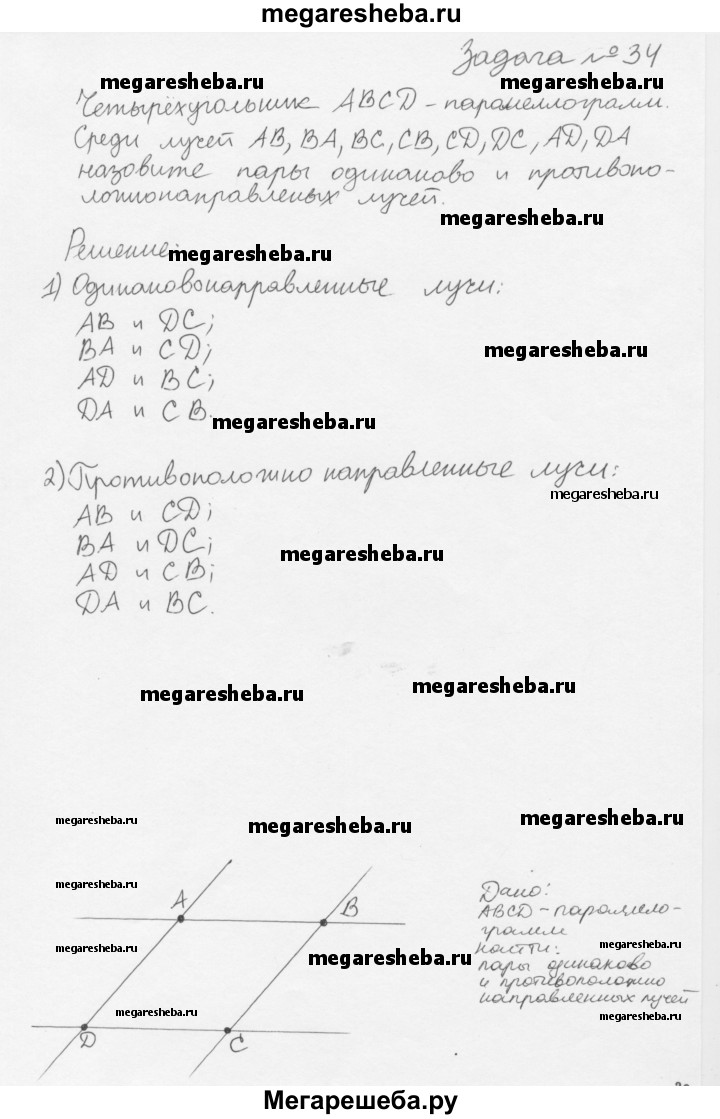 megaresheba.ru
Задача № 34
megaresheba.ru megaresheba.ru
Четырёхугольник ABCD - параллелограмм.
Среди лучей AB, BA, BC, CB, CD, DC, AD, DA
назовите пары одинаково и противопо-
ложнонаправленых лучей.
megaresheba.ru
Решение:
megaresheba.ru
1) Одинаковонаправленные лучи:
AB и DC;
BA и CD;
megaresheba.ru
AD и BC;
DA и CB.
megaresheba.ru
2) Противоположно направленные лучи:
megaresheba.ru
AB и CD;
BA и DC;
megaresheba.ru
AD и CB;
DA и BC.
megaresheba.ru
megaresheba.ru
megaresheba.ru
megaresheba.ru
megaresheba.ru
megaresheba.ru
A B
D C
Дано:
ABCD - параллело-
грамм
Найти:
пары одинаково
и противоположно
направленных лучей
megaresheba.ru
megaresheba.ru
megaresheba.ru
megaresheba.ru
megaresheba.ru
Мегарешеба.ру